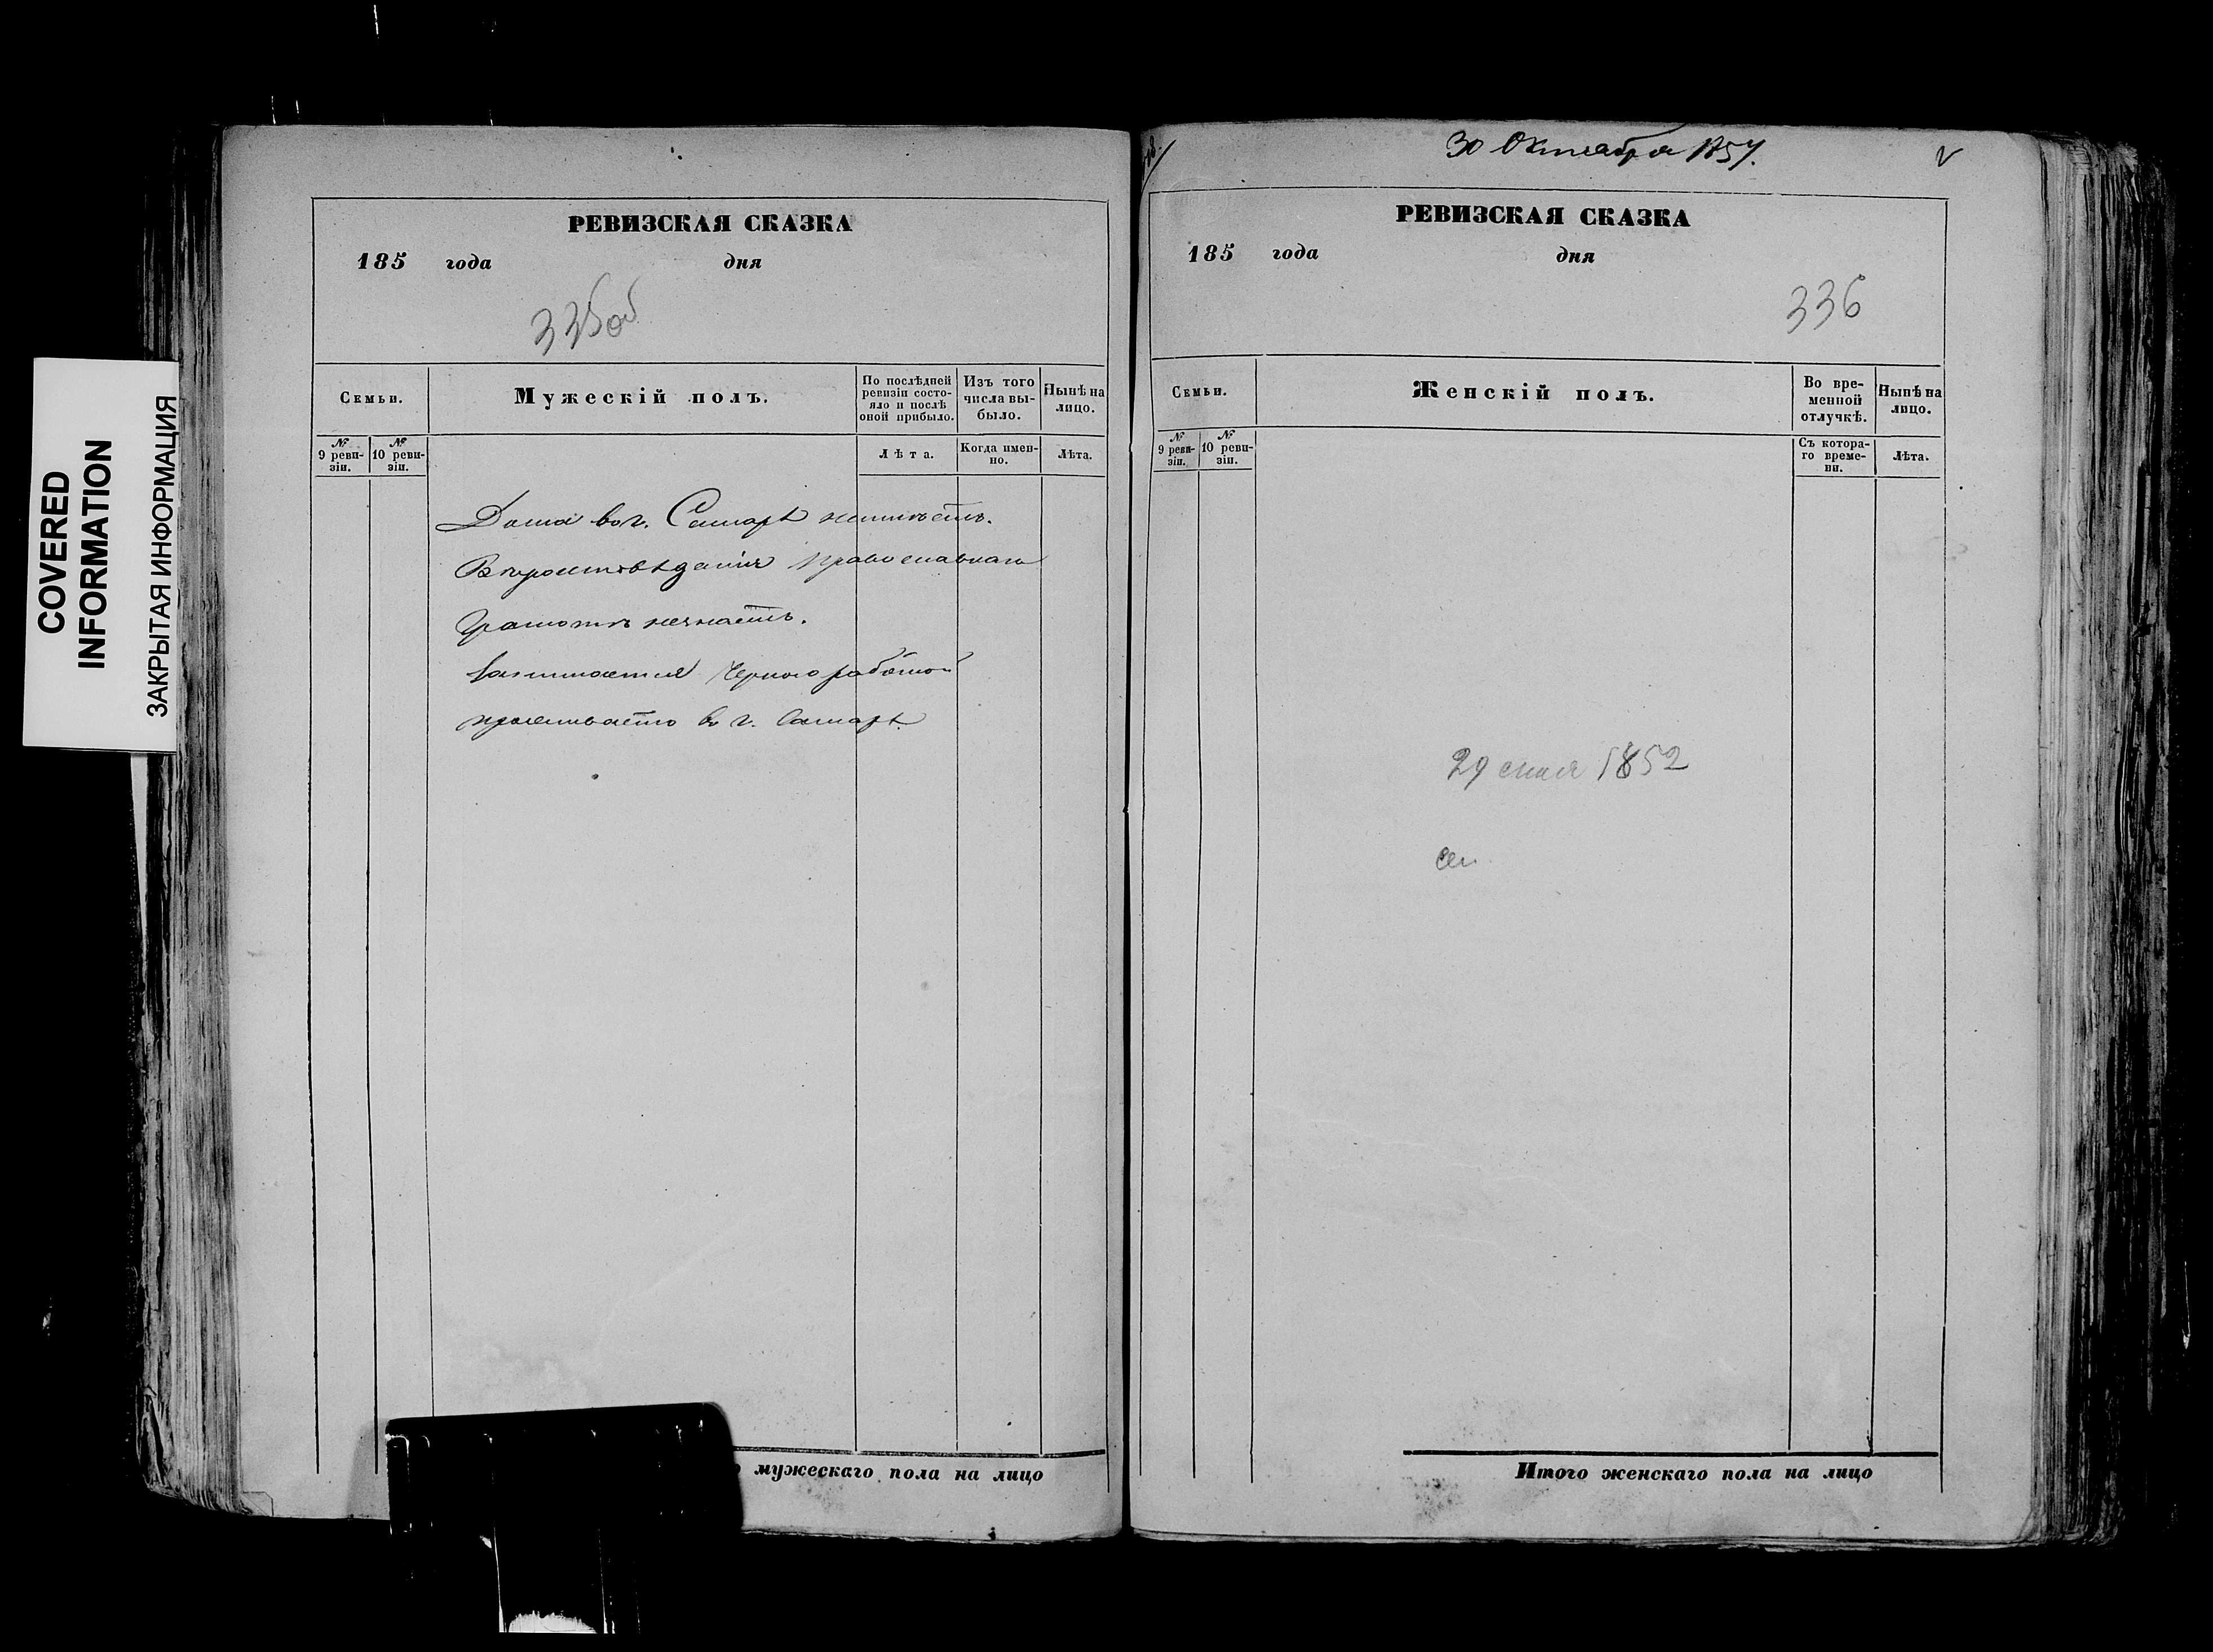 COVERED
INFORMATION
ЗАКРЫТАЯ ИНФОРМАЦИЯ
РЕВИЗСКАЯ СКАЗКА
185 года дня
335об
Семьи.
Мужескій полъ.
По послѣдней ревизіи состояло и послѣ оной прибыло.
Изъ того числа выбыло.
Нынѣ на лицо.
№ 9 ревизіи.
№ 10 ревизіи.
Лѣта.
Когда именно.
Лѣта.
Дома въ г. Самарѣ неимѣетъ.
Вѣроисповѣданія православнаго
Грамотѣ незнаетъ.
Занимается Черною работой
проживаетъ въ г. Самарѣ.
мужескаго пола на лицо
30 Октября 1857.
РЕВИЗСКАЯ СКАЗКА
185 года дня
336
Семьи.
Женскій полъ.
Во временной отлучкѣ.
Нынѣ на лицо.
№ 9 ревизіи.
№ 10 ревизіи.
Съ котораго времени.
Лѣта.
29 1852
Итого женскаго пола на лицо